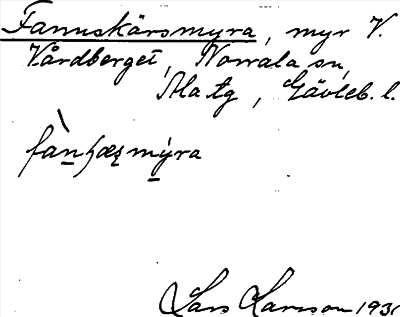 Fanuskärsmyra, myr V.
Vårdberget, Norrala sn,
Ala tg, Gävleb. l.
fànʃæʂmýra
Lars Larsson 1931